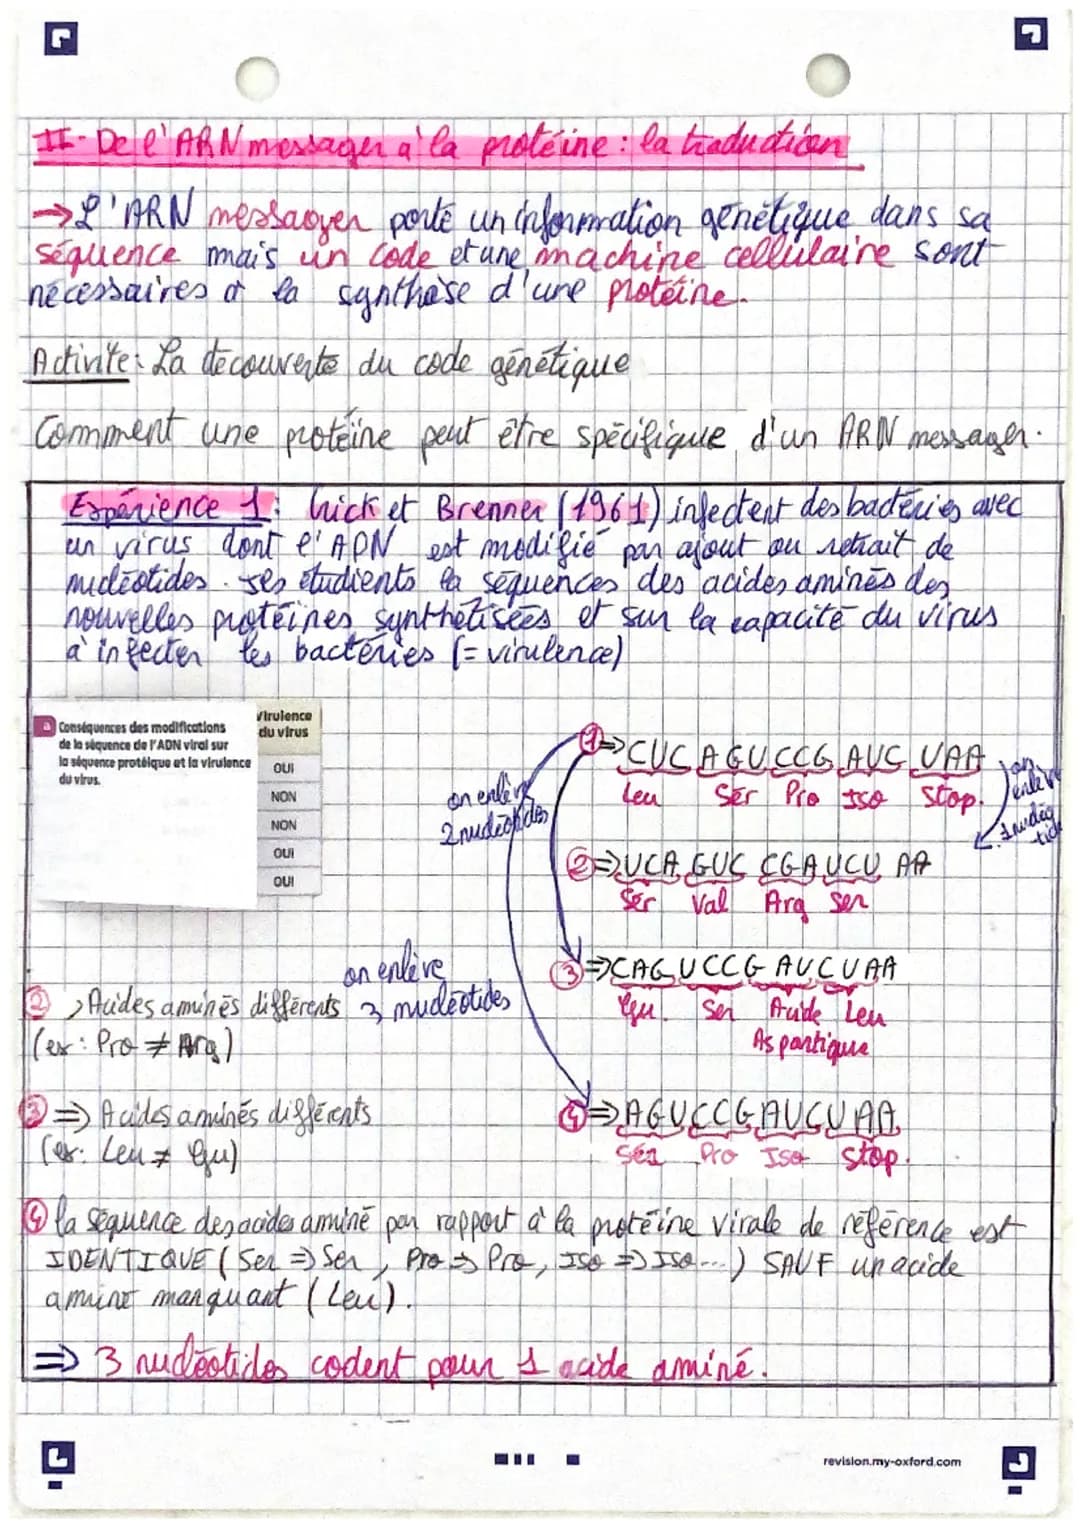 II- De l'ARN messager à la protéine : la traduction
→ L'ARN messager porte un information génétique dans sa
séquence mais un code et une machine cellulaire sont
nécessaires à la synthèse d'une protéine.
Activité : La découverte du code génétique
Comment une protéine peut être spécifique d'un ARN messager.
Expérience 1 : Crick et Brenner (1961) infectent des bactéries avec
un virus dont l'ADN est modifié par ajout ou retrait de
nucléotides. Ils étudient la séquences des acides aminés des
nouvelles protéines synthétisées et sur la capacité du virus
à infecter les bactéries (= virulence)
a Conséquences des modifications
de la séquence de l'ADN viral sur
la séquence protéique et la virulence
du virus.
Virulence
du virus
OUI
NON
NON
OUI
OUI
① => CUC AGU CCG AUC UAA
Leu Ser Pro Iso Stop.
on enlève
2 nucléotides
on
enlève
1 nucléo
tide
② => UCA GUC CGA UCU AA
Ser Val Arg Ser
③ => CAG UCC GAU CUAA
Glu. Ser Acide Leu
Aspartique
on enlève
3 nucléotides
② > Acides aminés différents
(ex : Pro ≠ Arg)
③ => Acides aminés différents
(ex : Leu ≠ Glu)
④ => AGU CCG AUC UAA
Ser Pro Iso Stop.
④ la séquence des acides aminé par rapport à la protéine virale de référence est
IDENTIQUE (Ser => Ser, Pro => Pro, Iso => Iso...) SAUF un acide
aminé manquant (Leu).
=> 3 nucléotides codent pour 1 acide aminé.
revision.my-oxford.com